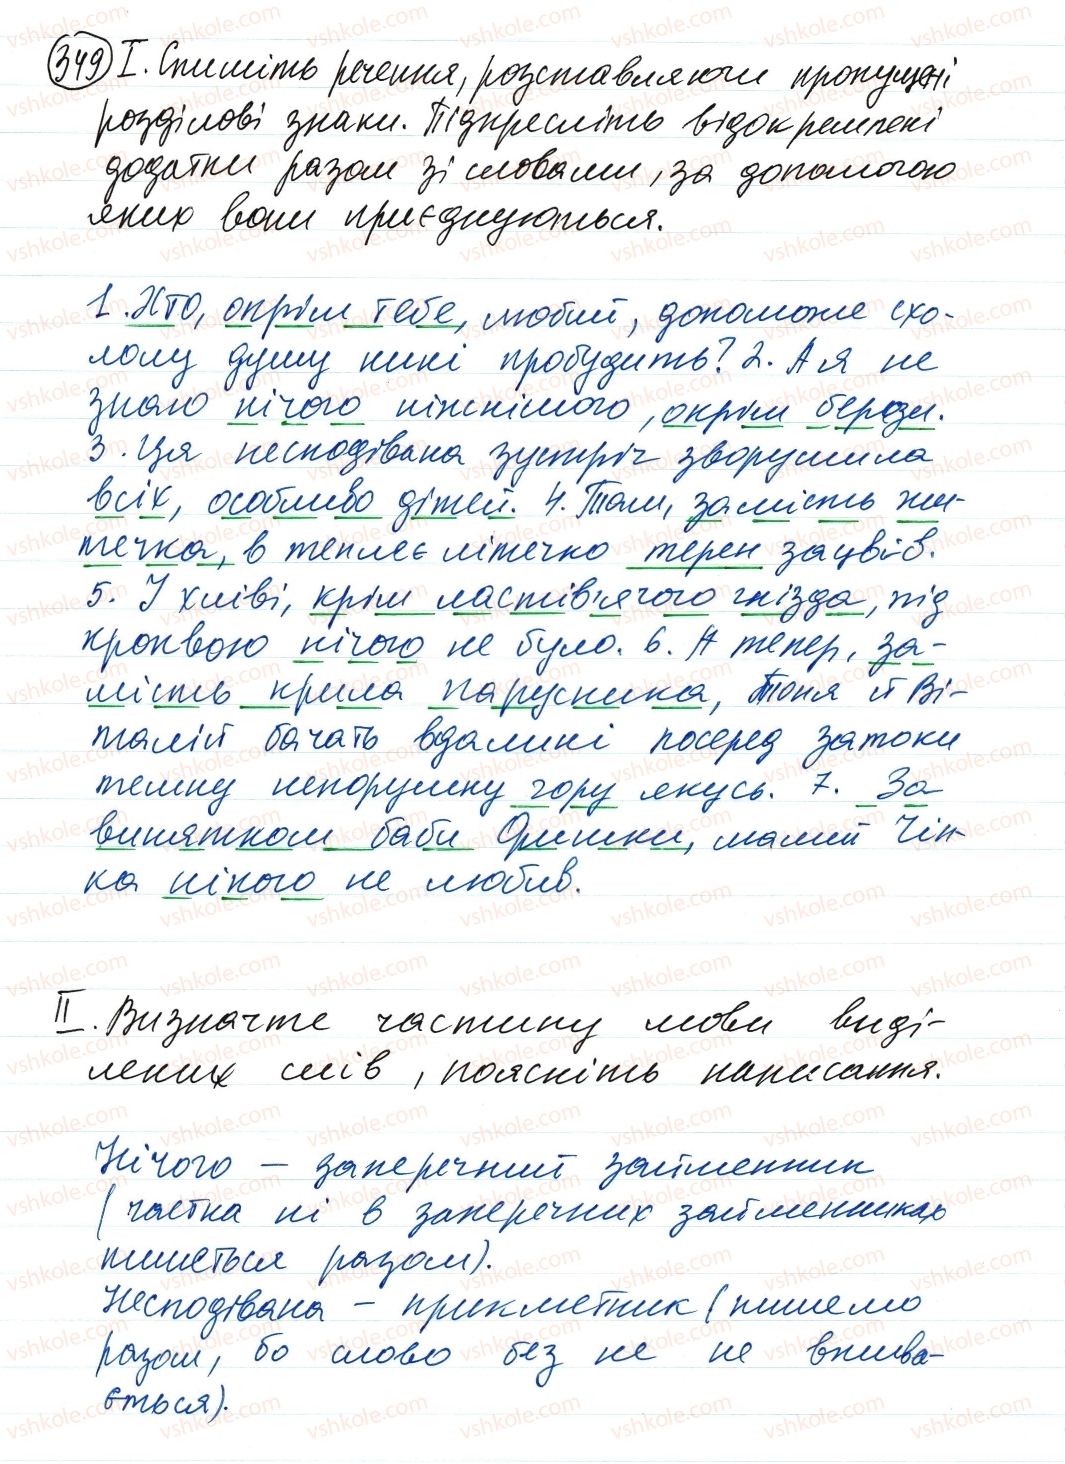 349 I. Спишіть речення, розставляючи пропущені
розділові знаки. Підкресліть відокремлені
додатки разом зі словами, за допомогою
яких вони приєднуються.
1. Хто, окрім тебе, любий, допоможе схо-
лому душу нині пробудить? 2. А я не
знаю нічого ніжнішого, окрім берези.
3. Ця несподівана зустріч зворушила
всіх, особливо дітей. 4. Там, замість жи-
течка, в теплеє літечко терен зацвів.
5. У хліві, крім ластів'ячого гнізда, під
кроквою нічого не було. 6. А тепер, за-
мість крила парусника, Тоня й Ві-
талій бачать вдалині посеред затоки
темну непорушну гору якусь. 7. За
винятком баби Оришки, малий Чіп-
ка нікого не любив.
II. Визначте частину мови виді-
лених слів, поясніть написання.
Нічого – заперечний займенник
(частка ні в заперечних займенниках
пишеться разом).
Несподівана – прикметник (пишемо
разом, бо слово без не не вжива-
ється).